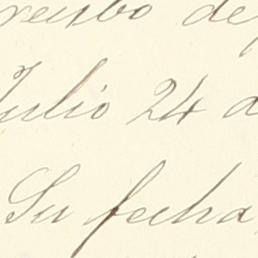 recibo de
Julio 24 a
Su fecha